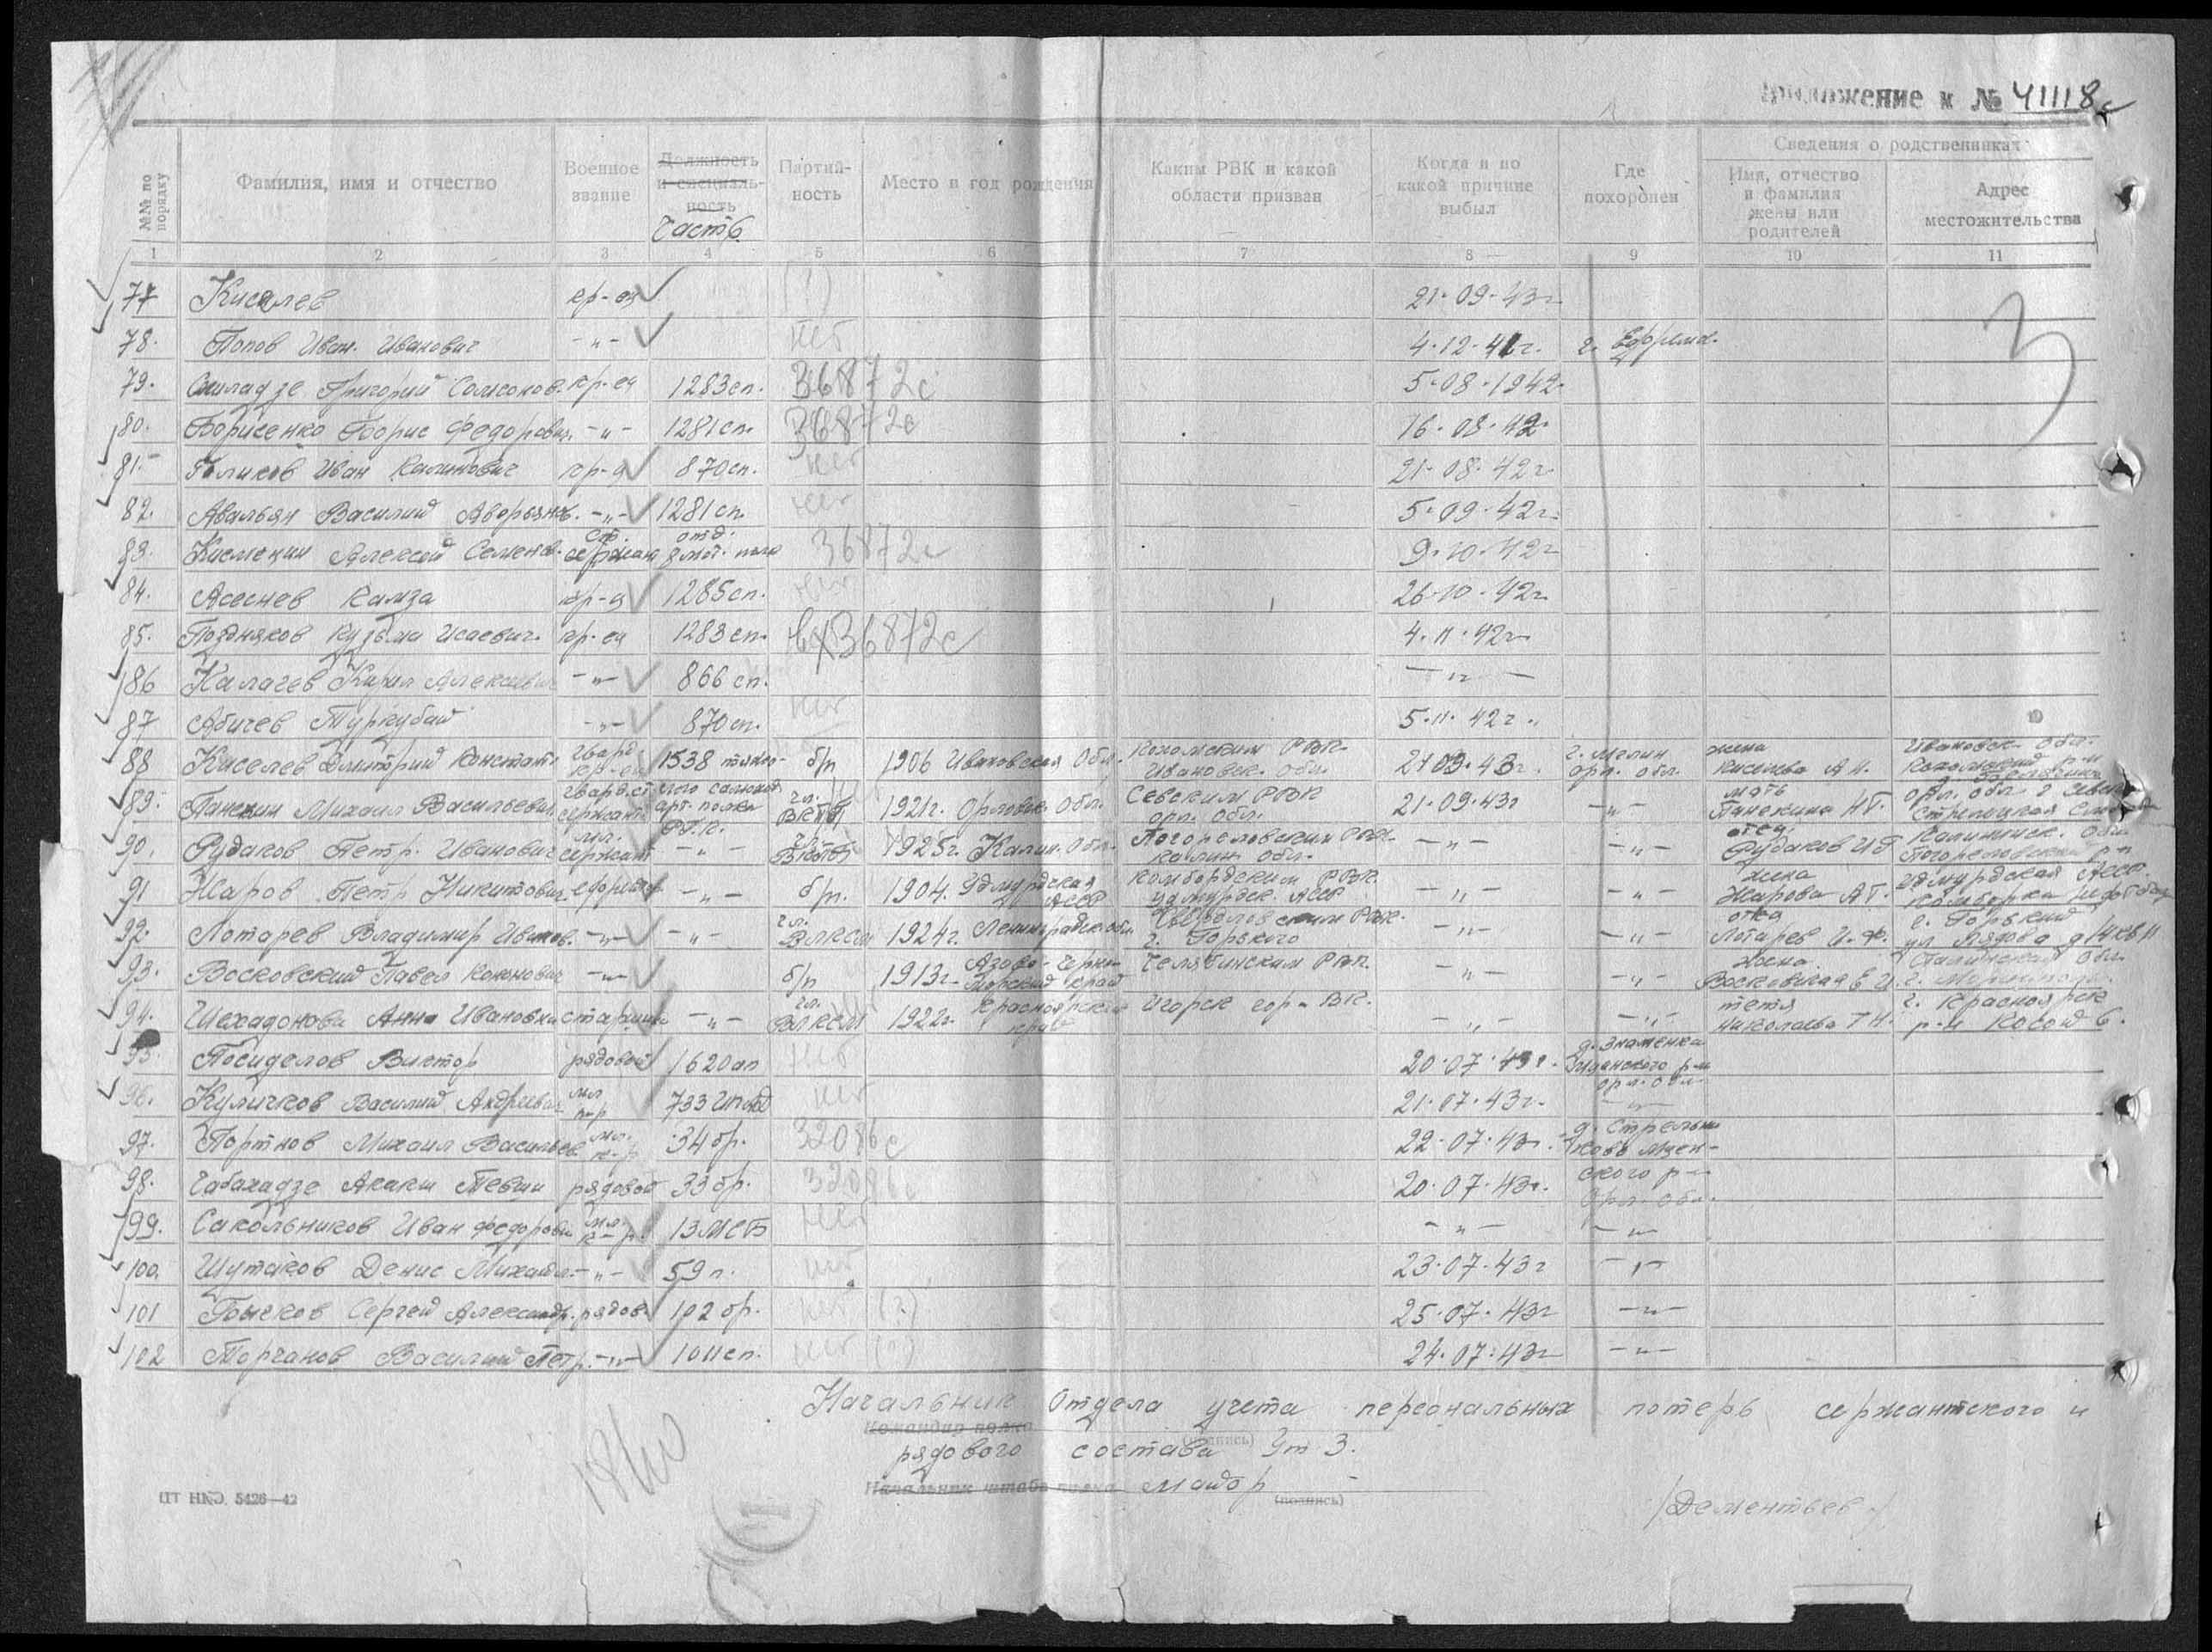 Приложение к № 41118с
№№ по порядку
Фамилия, имя и отчество
Военное звание
Должность и специальность
Часть
Партийность
Место и год рождения
Каким РВК и какой области призван
Когда и по какой причине выбыл
Где похоронен
Сведения о родственниках
Имя, отчество и фамилия жены или родителей
Адрес местожительства
1 2 3 4 5 6 7 8 9 10 11
77 Киселев кр-ец (?) 21.09.43г
78. Попов Иван Иванович -"- нет 4.12.41г. г. Ефремов
79. Григорий кр-ец 1283сп. 36872с 5.08.1942
80. Борисенко Борис Федорович -"- 1281сп. 36872с 16.08.42
81. Голиков Иван Калинович кр-ц 870сп. нет 21.08.42г
82. Авальян Василий -"- 1281сп. нет 5.09.42г
83. Алексей Семенов. ст. сержант отд. 36872с 9.10.42г
84. Асеснев Камза кр-ц 1285сп. нет 26.10.42г
85. Поздняков Кузьма Исаевич кр-ец 1283сп. вх36872с 4.11.42г
86 Калачев Кирил Алексеевич -"- 866сп. -"-
87 Абичев Туркубай -"- 870сп. нет 5.11.42г.
88 Киселев Дмитрий Констант. гвард. кр-ец 1538 б/п 1906 Ивановская Обл. Кохомским РВК Ивановск. обл. 21.09.43г. г. Мглин орл. обл. жена Киселева А И. Ивановск. обл. Кохомский р-н
89. Панекин Михаил Васильевич гвард.ст. сержант арт. полка чл. ВКПб 1921г. Орловск. Обл. Севским РВК орл. обл. 21.09.43г -"- мать Панекина Н Г. орл. обл г Севск Стрелецкая Слобода
90. Рудаков Петр Иванович мл. сержант -"- чл. ВКПб 1925г. Калин. Обл. Погореловским РВК Калин. обл. -"- -"- отец Рудаков И Г Калининск. обл. Погореловский р-н
91 Жаров Петр Никитович ефрейтор -"- б/п. 1904. Удмурдская АССР Камбордским РВК. Удмурдск. АССР -"- -"- жена Жарова А Г. Удмурдская АССР. Камборка
92. Лотарев Владимир Иванов. -"- -"- чл. ВЛКСМ 1924г. Ленинградск. обл. Свердловским РВК. г. Горького -"- -"- отец Лотарев И. Ф. г. Горький ул. Лядова д 14 кв 11
93. Восковский Павел Кононович -"- б/п 1913г. Азово-Черноморский край Челябинским РВК. -"- -"- жена Восковская Е И. Сталинская обл. г. Мариуполь
94. Шехадонова Анна Ивановна старшина -"- чл. ВЛКСМ 1922г. Красноярский край Игорск гор. ВК. -"- -"- тетя Николаева Т Н. г. Красноярск р-н Косой 6.
95. Посиделов Виктор рядовой 1620ап нет 20.07.43г. д. Знаменка Мценского р-н орл. обл.
96. Куличков Василий Андреевич мл к-р 733 нет 21.07.43г. -"-
97. Портнов Михаил Васильев. мл. к-р 34бр. 32086с 22.07.43г. д. Стрельниково Мценского р-н Орл. обл.
98. Чабахадзе Акакии рядовой 33бр. 32086с 20.07.43г.
99. Сакольников Иван Федорович мл. к-р. 13МСБ нет -"- -"-
100. Шутаков Денис Михайл. -"- 59п. нет 23.07.43г -"-
101 Бысков Сергей Александр. рядов. 102бр. нет (?) 25.07.43г -"-
102 Торганов Василий Петр. -"- 1011сп. нет (?) 24.07.43г -"-
3
Начальник Отдела учета персональных потерь сержантского и
Командир полка
(подпись)
рядового состава
Начальник штаба полка майор
(подпись)
/Дементьев/
ЦТ НКО. 5426—42